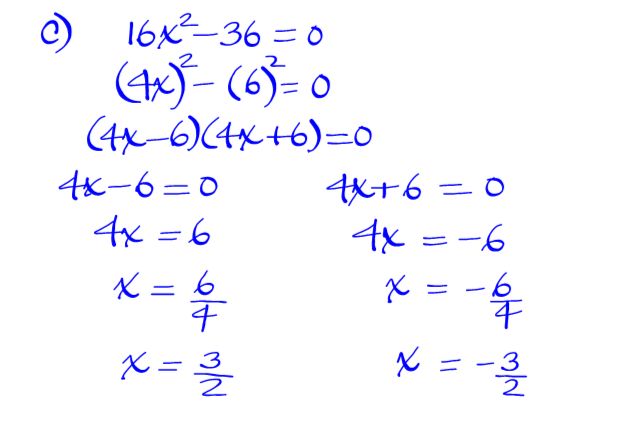 c) 16x² - 36 = 0
(4x)² - (6)² = 0
(4x-6)(4x+6)=0
4x-6=0 4x+6 = 0
4x = 6 4x = -6
x = 6/4 x = -6/4
x = 3/2 x = -3/2